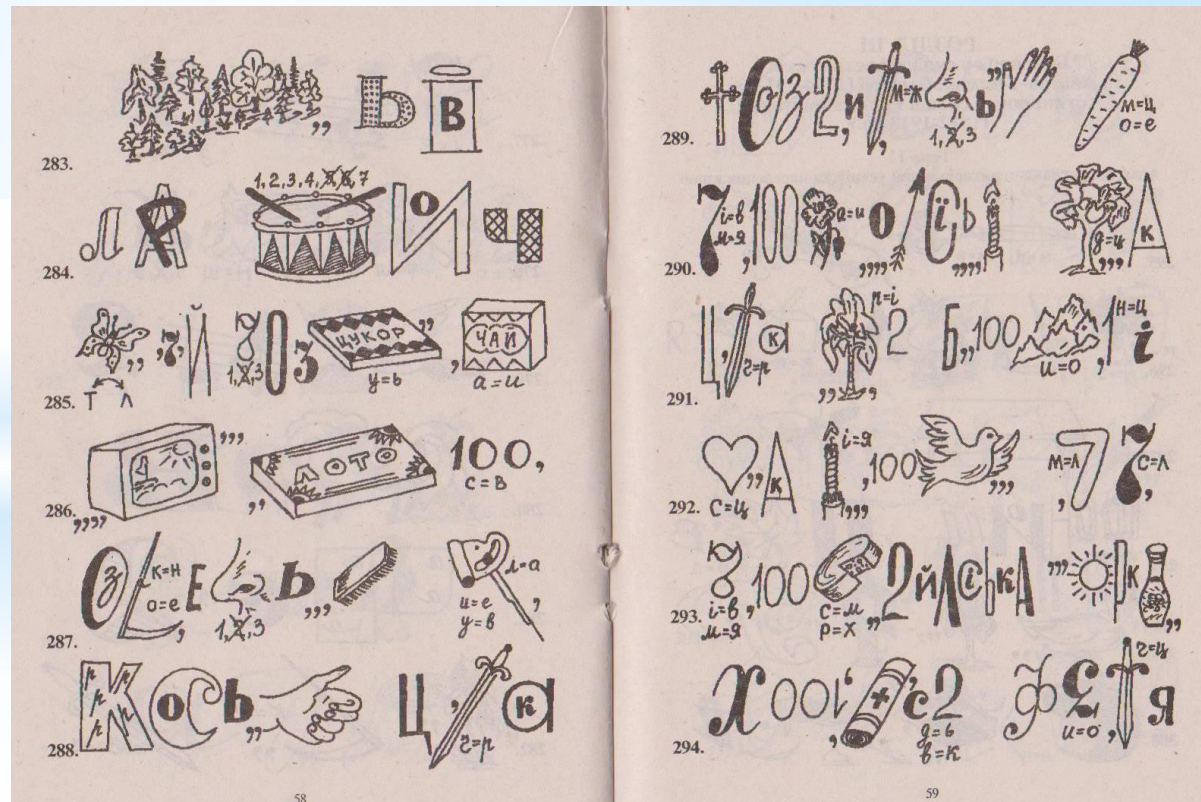 283.
,, Ь В
284.
Л А Р
1, 2, 3, 4, 5, 6, 7
И О Ч
285.
Т Л
,, ,7, Й 7
1, 2, 3
О З
ЦУКОР ,,
у=ь
, ЧАЙ
а=и
286.
,,,, ,,,
,, ЛОТО
100,
с=в
287.
О З
к=н
о=е
, Е
1, 2, 3
Ь ,,,
и=е
у=в
л=а
,
288.
К р р р р р
О С Ь ,,
Ц
г=р
к а
58
289.
О З 2 , и
м=ж
,
1, 2, 3
ь ,,
м=ц
о=е
290.
7
і=в
м=я
, 100
а=и
,,,, о
С ї ,,,, ь
д=ц
,,, А к
291.
Ц
г=р
к а
,, ,,
р=і
2
Б ,, 100
и=о
, 1
н=ц
і
292.
с=ц
,, А к
і=я
,,,,
, 100
,,,
м=л
, 7 7
с=л
,
293.
7
і=в
м=я
, 100
с=м
р=х
,, 2 й л с і ь к а
,,,
р к
,,
294.
Х 100 ,
, + с 2
д=ь
в=к
ф Є
и=о
,
г=ц
я
59